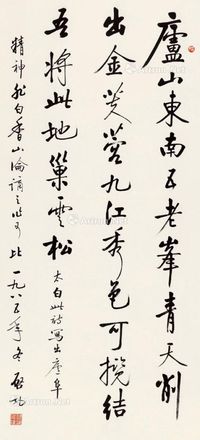 廬山東南五老峯青天削
出金芙蓉九江秀色可攬結
吾將此地巢雲松 太白此詩寫出廬阜
精神非白香山論謫之此可比 一九八五年冬 啟功